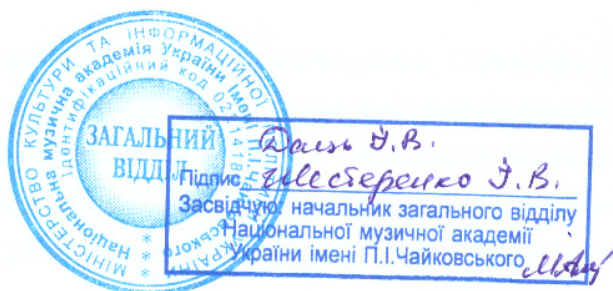 МІНІСТЕРСТВО КУЛЬТУРИ ТА ІНФОРМАЦІЙНОЇ УКРАЇНИ
Національна музична академія України імені П.І.Чайковського
Ідентифікаційний код
ЗАГАЛЬНИЙ
ВІДДІЛ
* * *
І.В.
Підпис Нестеренко І.В.
Засвідчую: начальник загального відділу
Національної музичної академії
України імені П.І.Чайковського